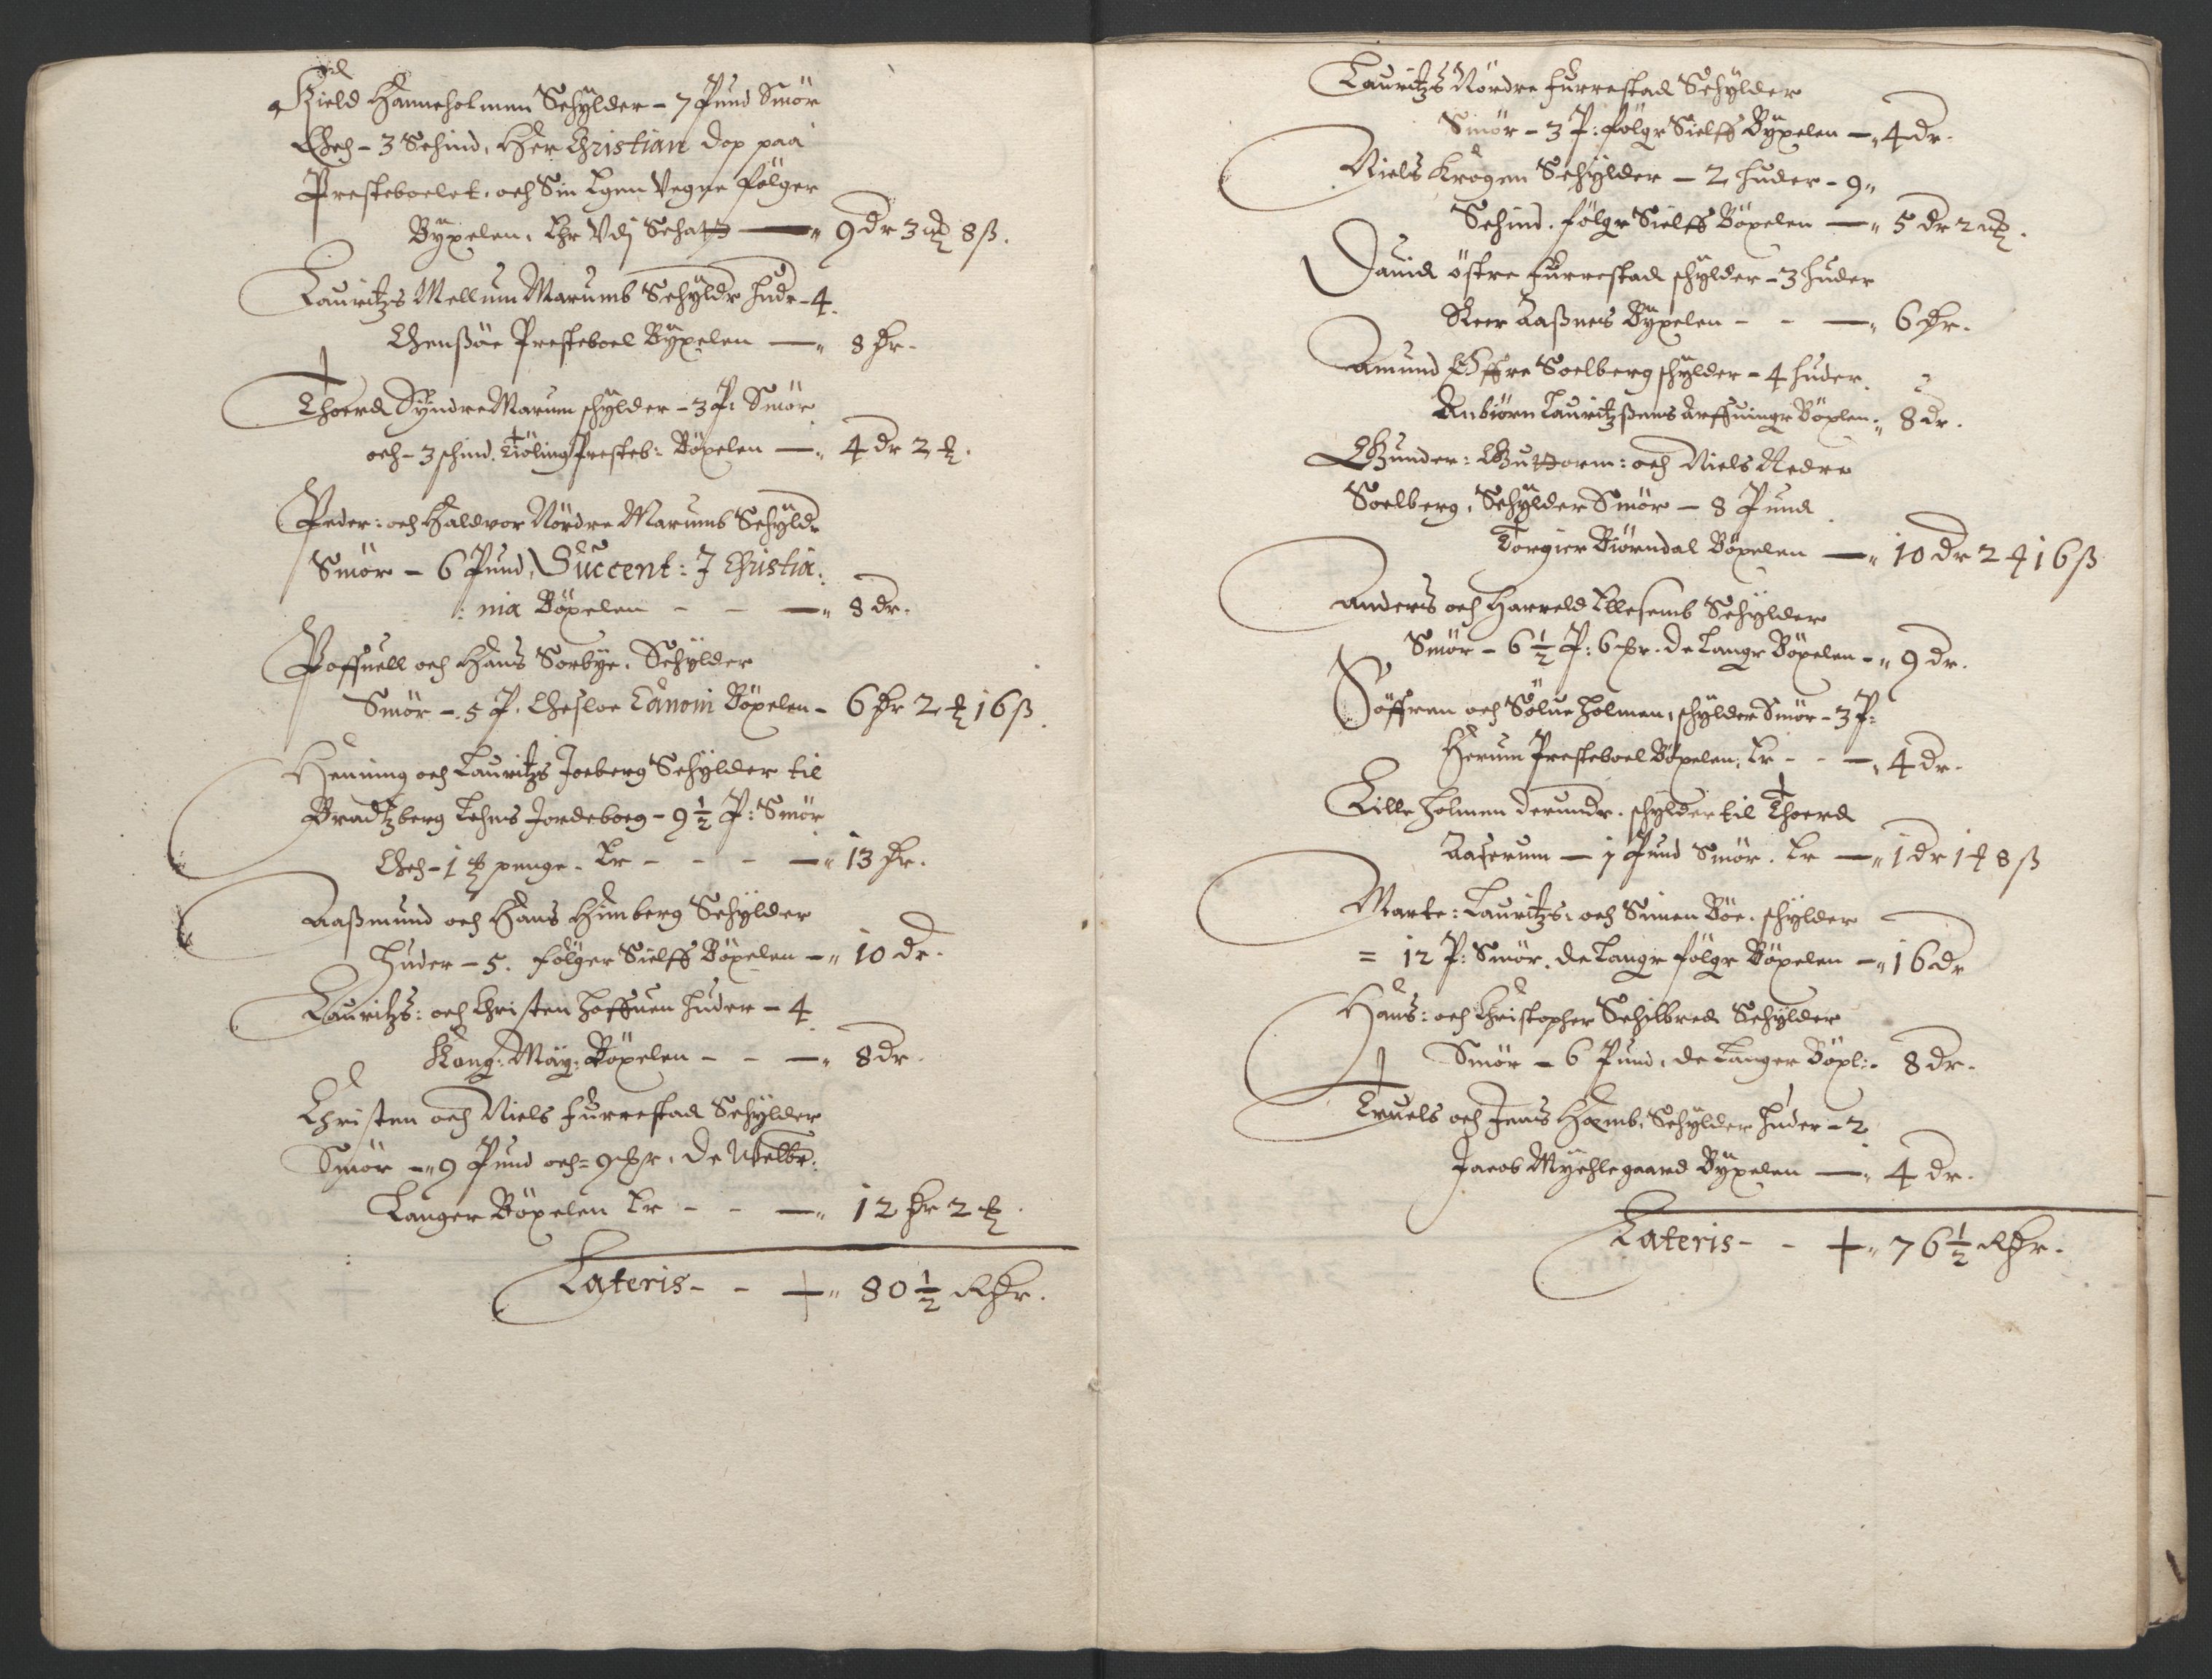 Kield Hanneholmen Schÿlder - 7 Pund Smör
Och - 3 Schind, Her Christian Dop paa
Presteboelet, och Sin Egen Vegne følger
Bÿxelen, Er Vdj Schatt — 9 dr 3 ℔ 8 ß.
Lauritzs Mellum Marumb Schÿldr hudr - 4.
Presteboel Bÿxelen — 8 dr.
Thoerd Sÿndre Marum schÿlder - 3 P: Smör
och - 3 schind. Tiöling Presteb: Böxelen — 4 dr 2 ℔.
Peder: och Haldvor Nördre Marumb Schÿldr
Smör - 6 Pund, Succent: J Christia:
:nia Böxelen - - — 8 dr.
Poffuell och Hans Sorbÿe. Schÿlder
Smör - 5 P. Canoni Böxelen - 6 dr 2 ℔ 16 ß.
Henning och Lauritzs Joeberg Schÿlder til
Bradtzberg Lehns Jordeboeg - 9 ½ P: Smör
Och - 1 ℔ penge. Er - - - — 13 dr.
Aaßmund och Hans Himberg Schÿlder
Huder - 5. følger Sielff Böxelen — 10 dr.
Lauritzs: och Christen Hoffuen huder - 4
Kong: Maÿ: Böxelen - - — 8 dr.
Christen och Niels Furrestad Schÿlder
Smör - 9 Pund och - 9 De Welbr:
Langer Böxelen Er - - — 12 dr 2 ℔.
Lateris - - 80 ½ Rdr.
Lauritzs Nördre Furrestad Schÿlder
Smör - 3 P: følgr Sielff Bÿxelen — 4 dr.
Niels Krogen Schÿlder - 2 huder - 9
Schind. følgr Sielff Böxelen — 5 dr 2 ℔.
Dauid östre Furrestad schÿlder - 3 huder
Peer Aaßnes Bÿxelen - - — 6 dr.
Amund Öffre Soelberg schÿlder - 4 huder.
Anbiørn Lauritzßens Arffuingr Böxlen: 8 dr.
Gunder: Guttorm: och Niels Nedre
Soelberg, Schÿlder Smör - 8 Pund
Torgier Biørndal Böxelen — 10 dr 2 ℔ 16 ß
Anders och Harreld Ellesemb Schÿlder
Smör - 6 ½ P: 6 De Langr Böxelen - 9 dr.
Söffren och Sölue Holmen, schÿlder Smör - 3 P:
Herum Presteboel Böxelen, Er - - — 4 dr.
Lille Holmen derundr. schÿlder til Thoerd
Aaserum — 1 Pund Smör. Er — 1 dr 1 ℔ 8 ß
Marte: Lauritzs: och Simen Böe. schÿlder
= 12 P: Smör. De Langr følgr Böxelen — 16 dr
Hans: och Christopher Schilbred Schÿlder
Smör - 6 Pund, De Langer Böxl: - 8 dr.
Truels och Jens Hemb, Schÿlder huder - 2
Jacob Mÿchlegaard Bÿxelen — 4 dr.
Lateris - - 76 ½ Rdr.